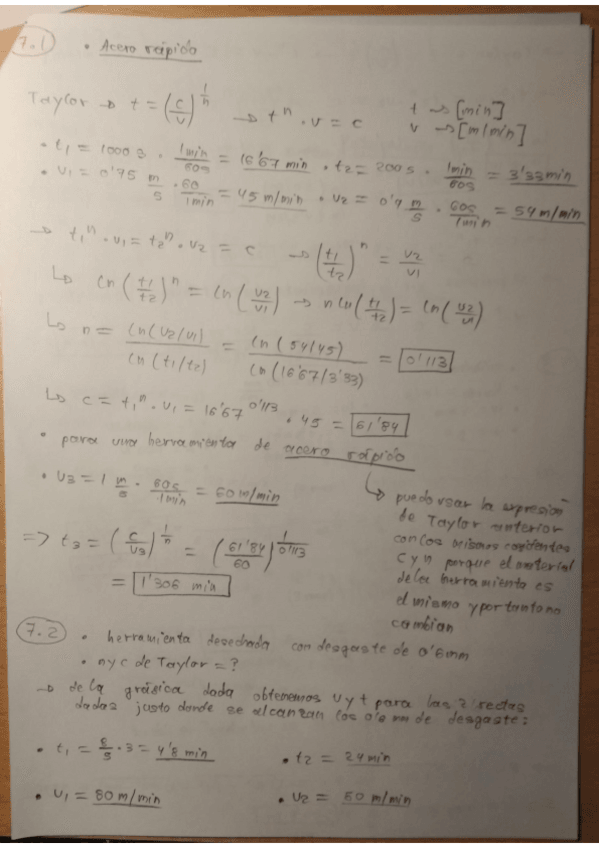 7.1 • Acero rápido
Taylor → t = (c/v)^(1/n) → t^n · v = c t → [min]
v → [m/min]
• t1 = 1000 s · 1min/60s = 16'67 min • t2 = 200 s · 1min/60s = 3'33 min
• v1 = 0'75 m/s · 60/1min = 45 m/min • v2 = 0'9 m/s · 60s/1min = 54 m/min
→ t1^n · v1 = t2^n · v2 = c → (t1/t2)^n = v2/v1
↳ ln (t1/t2)^n = ln (v2/v1) → n ln (t1/t2) = ln (v2/v1)
↳ n = ln(v2/v1)/ln(t1/t2) = ln(54/45)/ln(16'67/3'33) = 0'113
↳ c = t1^n · v1 = 16'67^0'113 · 45 = 61'84
• para una herramienta de acero rápido
• v3 = 1 m/s · 60s/1min = 60 m/min
↳ puedo usar la expresión
de Taylor anterior
con los mismos coeficientes
c y n porque el material
de la herramienta es
el mismo y por tanto no
cambian
=> t3 = (c/v3)^(1/n) = (61'84/60)^(1/0'113)
= 1'306 min
7.2 • herramienta desechada con desgaste de 0'6mm
• n y c de Taylor = ?
→ de la gráfica dada obtenemos v y t para las 2 rectas
dadas justo donde se alcanzan los 0'6 mm de desgaste:
• t1 = 8/5 · 3 = 4'8 min • t2 = 24 min
• v1 = 80 m/min • v2 = 50 m/min